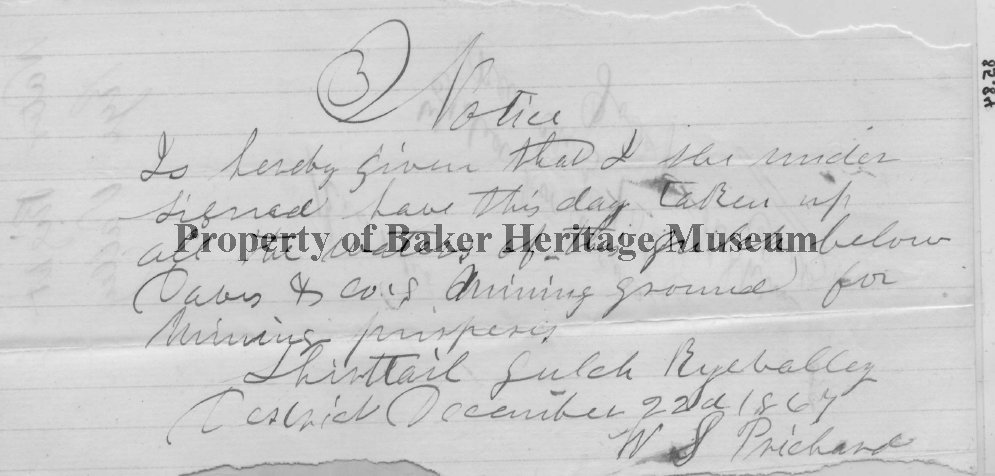 3
Notice
Is hereby given that I the under
signed have this day taken up
all the waters of this gulch below
Property of Baker Heritage Museum
Davis & Co's Mining ground for
Mining purposes
Shirttail gulch Ryevalley
District December 22d 1867
W S Prichard